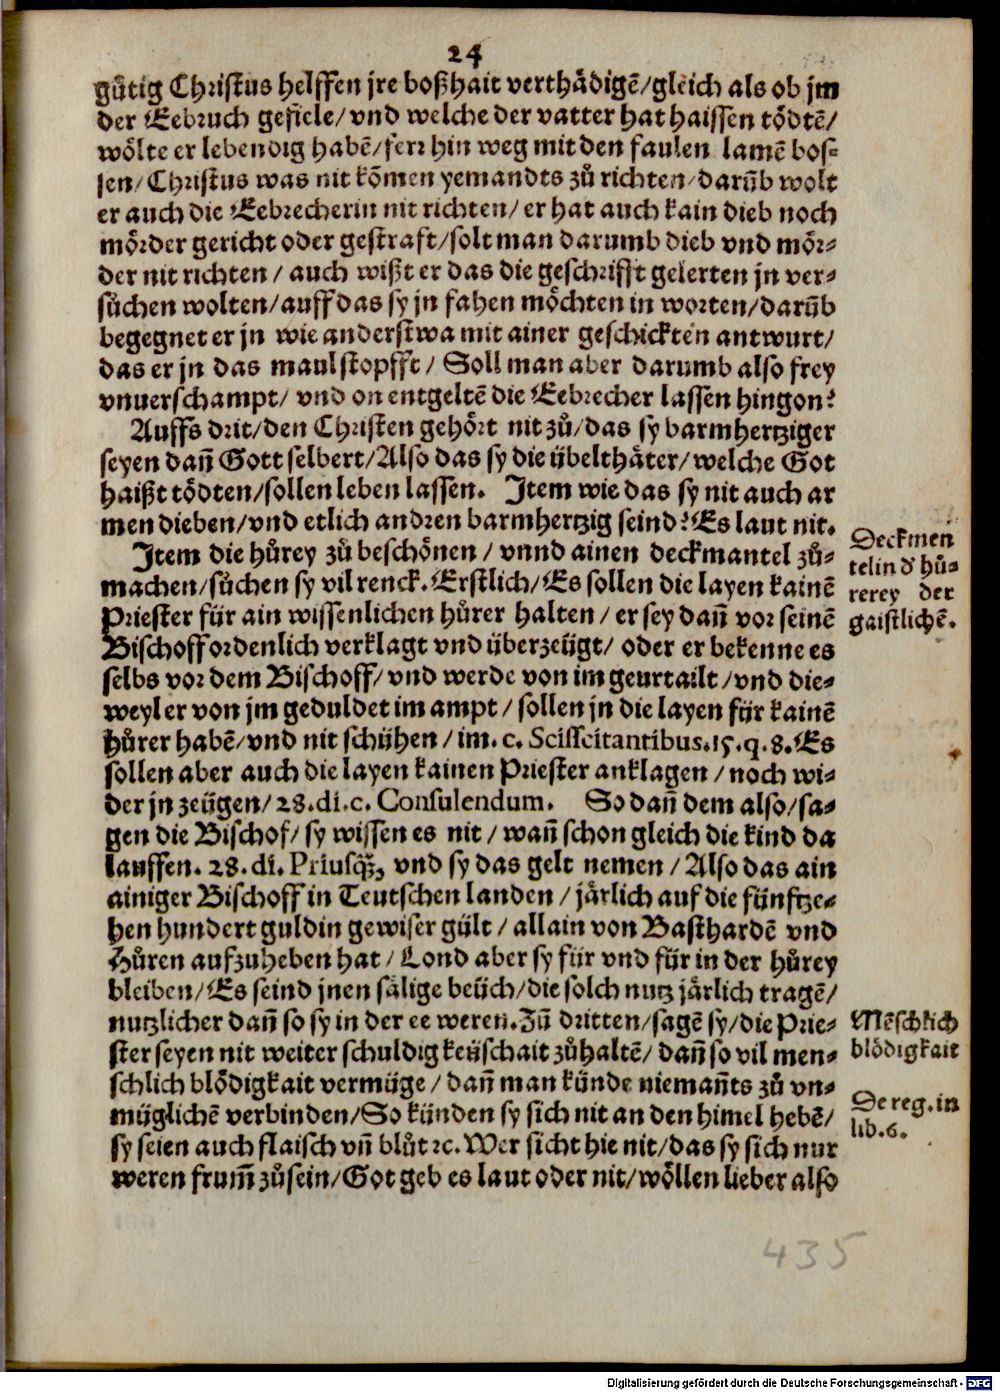 24
gůtig Christus helffen jre boßhait verthädigē/gleich als ob jm
der Eebruch gefiele/vnd welche der vatter hat haissen tödtē/
wölte er lebendig habē/ferr hin weg mit den faulen lamē bos⸗
sen/Christus was nit kōmen yemandts zů richten/darūb wolt
er auch die Eebrecherin nit richten/er hat auch kain dieb noch
mörder gericht oder gestraft/solt man darumb dieb vnd mör⸗
der nit richten/ auch wißt er das die geschrifft gelerten jn ver⸗
sůchen wolten/auff das sy jn fahen möchten in worten/darūb
begegnet er jn wie anderstwa mit ainer geschickten antwurt/
das er jn das maul stopfft/ Soll man aber darumb also frey
vnuerschampt/ vnd on entgeltē die Eebrecher lassen hingon?
Auffs drit/den Christen gehört nit zů/das sy barmhertziger
seyen dañ Gott selbert/Also das sy die übelthäter/welche Got
haißt tödten/sollen leben lassen. Item wie das sy nit auch ar
men dieben/vnd etlich andren barmhertzig seind? Es laut nit.
Item die hůrey zů beschönen/ vnnd ainen deckmantel zů⸗
machen/sůchen sy vil renck. Erstlich/Es sollen die layen kainē
Priester für ain wissenlichen hůrer halten/ er sey dañ vor seinē
Bischoff ordenlich verklagt vnd überzeügt/ oder er bekenne es
selbs vor dem Bischoff/vnd werde von im geurtailt/vnd die⸗
weyl er von jm geduldet im ampt/ sollen jn die layen für kainē
hůrer habē/vnd nit schühen/im. c. Scisscitantibus. 15. q. 8. Es
sollen aber auch die layen kainen Priester anklagen/noch wi⸗
der jn zeügen/28. di. c. Consulendum. So dañ dem also/sa⸗
gen die Bischof/sy wissen es nit/ wañ schon gleich die kind da
lauffen. 28. di. Priusqꝫ, vnd sy das gelt nemen/Also das ain
ainiger Bischoff in Teutschen landen/ järlich auf die fünftze⸗
hen hundert guldin gewiser gült/allain von Basthardē vnd
Hůren aufzuheben hat/Lond aber sy für vnd für in der hůrey
bleiben/Es seind jnen sälige beüch/die solch nutz järlich tragē/
nutzlicher dañ so sy in der ee weren. Zū dritten/sagē sy/die Prie⸗
ster seyen nit weiter schuldig keüschait zůhaltē/ dañ so vil men⸗
schlich blödigkait vermüge/dañ man künde niemañts zů vn⸗
müglichē verbinden/So künden sy sich nit an den himel hebē/
sy seien auch flaisch vñ blůt ꝛc. Wer sicht hie nit/das sy sich nur
weren frum̄ zůsein/Got geb es laut oder nit/wöllen lieber also
Deckmen
telin d' hů⸗
rerey der
gaistlichē.
Mēschlich
blödigkait
De reg. in
lib. 6.
435
Digitalisierung gefördert durch die Deutsche Forschungsgemeinschaft - DFG